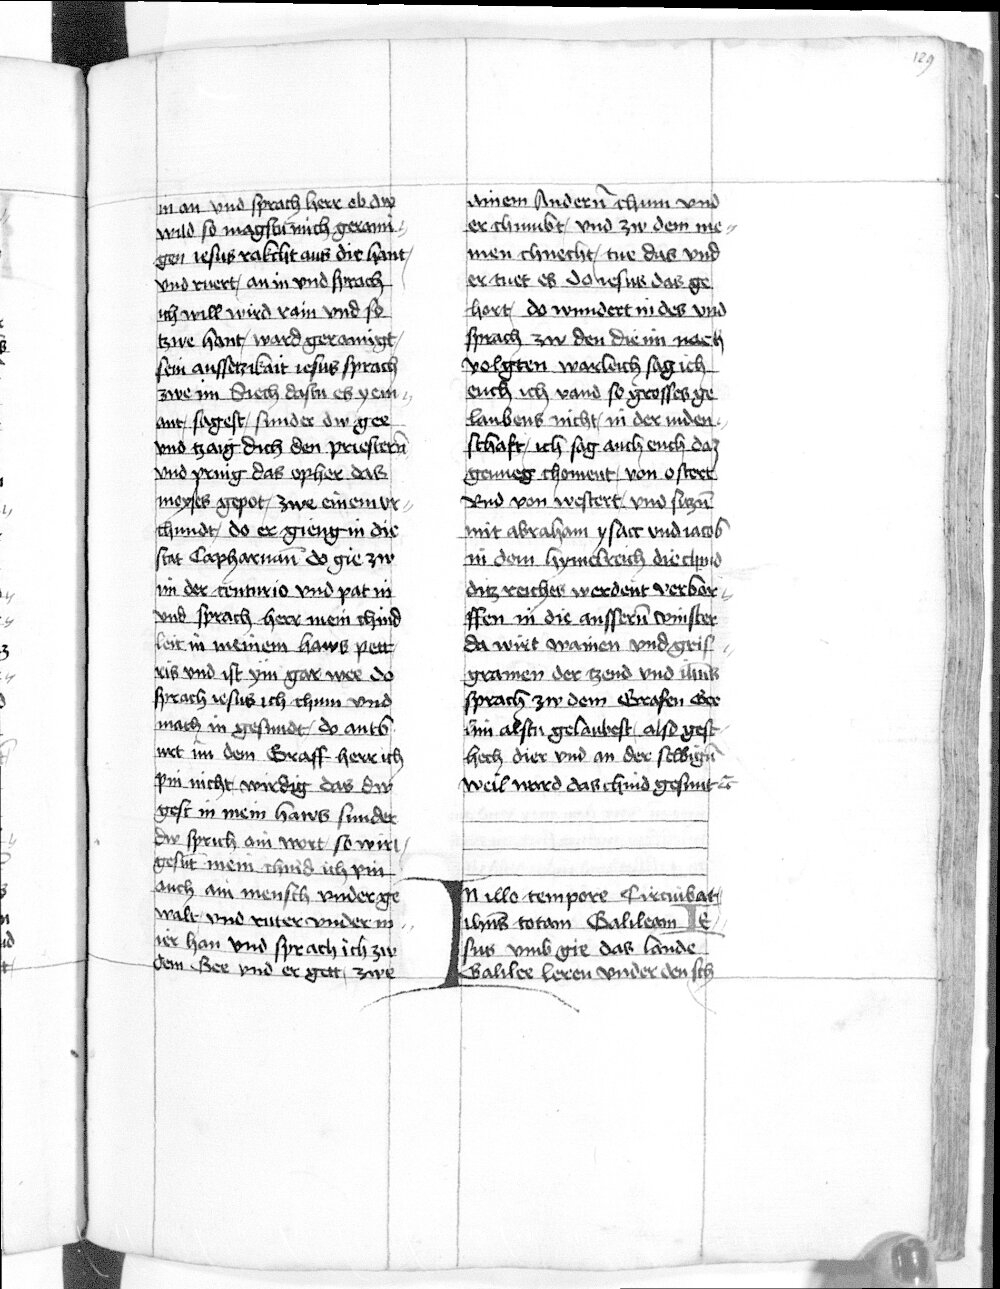 129
in an vnd sprach herr ob dw
wild so magstu mich geraini-
gen iesus rakcht aus die hant
vnd ruert an in vnd sprach
ich will wird rain vnd so
tzwe hant ward gerainigt
sein aussetzikait iesus sprach
zwe im Siech dastu es yem-
ant sagest sunder dw gee
vnd tzaig dich den priestern̄
vnd pring das opher das
moyses gepot zwe einem vr-
chundt do er gieng in die
stat Capharnaū do gie zw
im der centurio vnd pat in
vnd sprach herr mein chind
leit in meinem haws pett
ris vnd ist ym gar wee do
sprach iesus ich chum vnd
mach in gesundt do antb
urt im dem Graff herr ich
pin nicht wirdig das dw
gest in mein haws sunder
dw sprich ain wort so wirt
gesūt mein chind ich pin
auch ain mensch vnder ge
walt vnd ritter vnder m-
ier han vnd sprach ich zw
dem Gee vnd er gett zwe
ainem Andern̄ chum vnd
er chumbt vnd zw dem me-
inen chnecht tue das vnd
er tuet es Do iesus das ge
hort do wundert in des vnd
sprach zw den die im nach
volgten warleich sag ich
euch ich vand so grosses ge
laubens nicht in der iuden-
schaft ich sag auch euch daz
genueg choment von ostert
vnd von westert vnd siczn̄
mit abraham ysacc vnd iacob
in dem hymelreich die chind
ditz reiches werdent verbor-
ffen in die aussern̄ vinster
da wirt wainen vnd gris-
gramen der tzend vnd ihūs
sprach zw dem Grafen Gee
hin alstu gelaubest also gest
hech dier vnd an der selbign̄
weil ward das chind gesunt
IN illo tempore Circuibat
ihūs totam Galileam IE
sus vmb gie das lande
Galilee leren vnder den sch